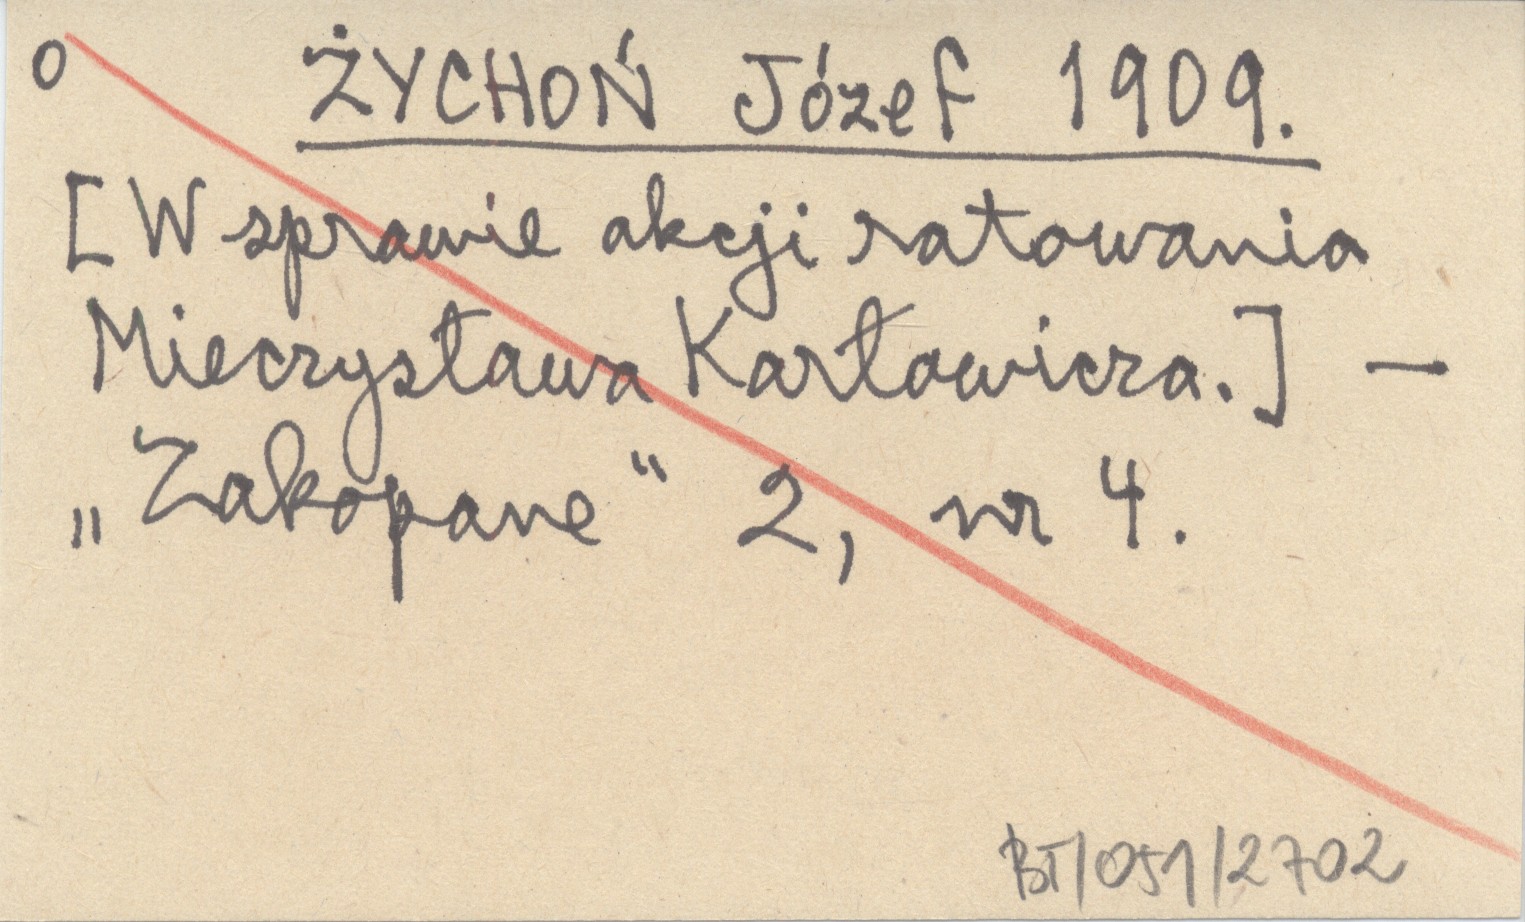 o ŻYCHOŃ Józef 1909.
[W sprawie akcji ratowania
Mieczysława Karłowicza.] —
„Zakopane" 2, nr 4.
BT/051/2702